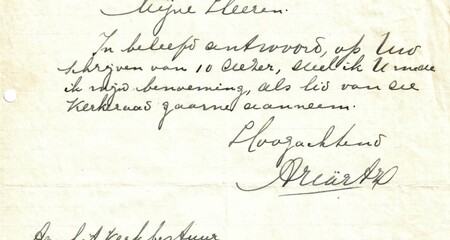 Mijne Heeren.
In beleefd antwoord, op Uw
schrijven van 10 dezer, deel ik U mede
ik mijn benoeming, als lid van de
Kerkeraad gaarne aanneem.
Hoogachtend
Kerkbestuur